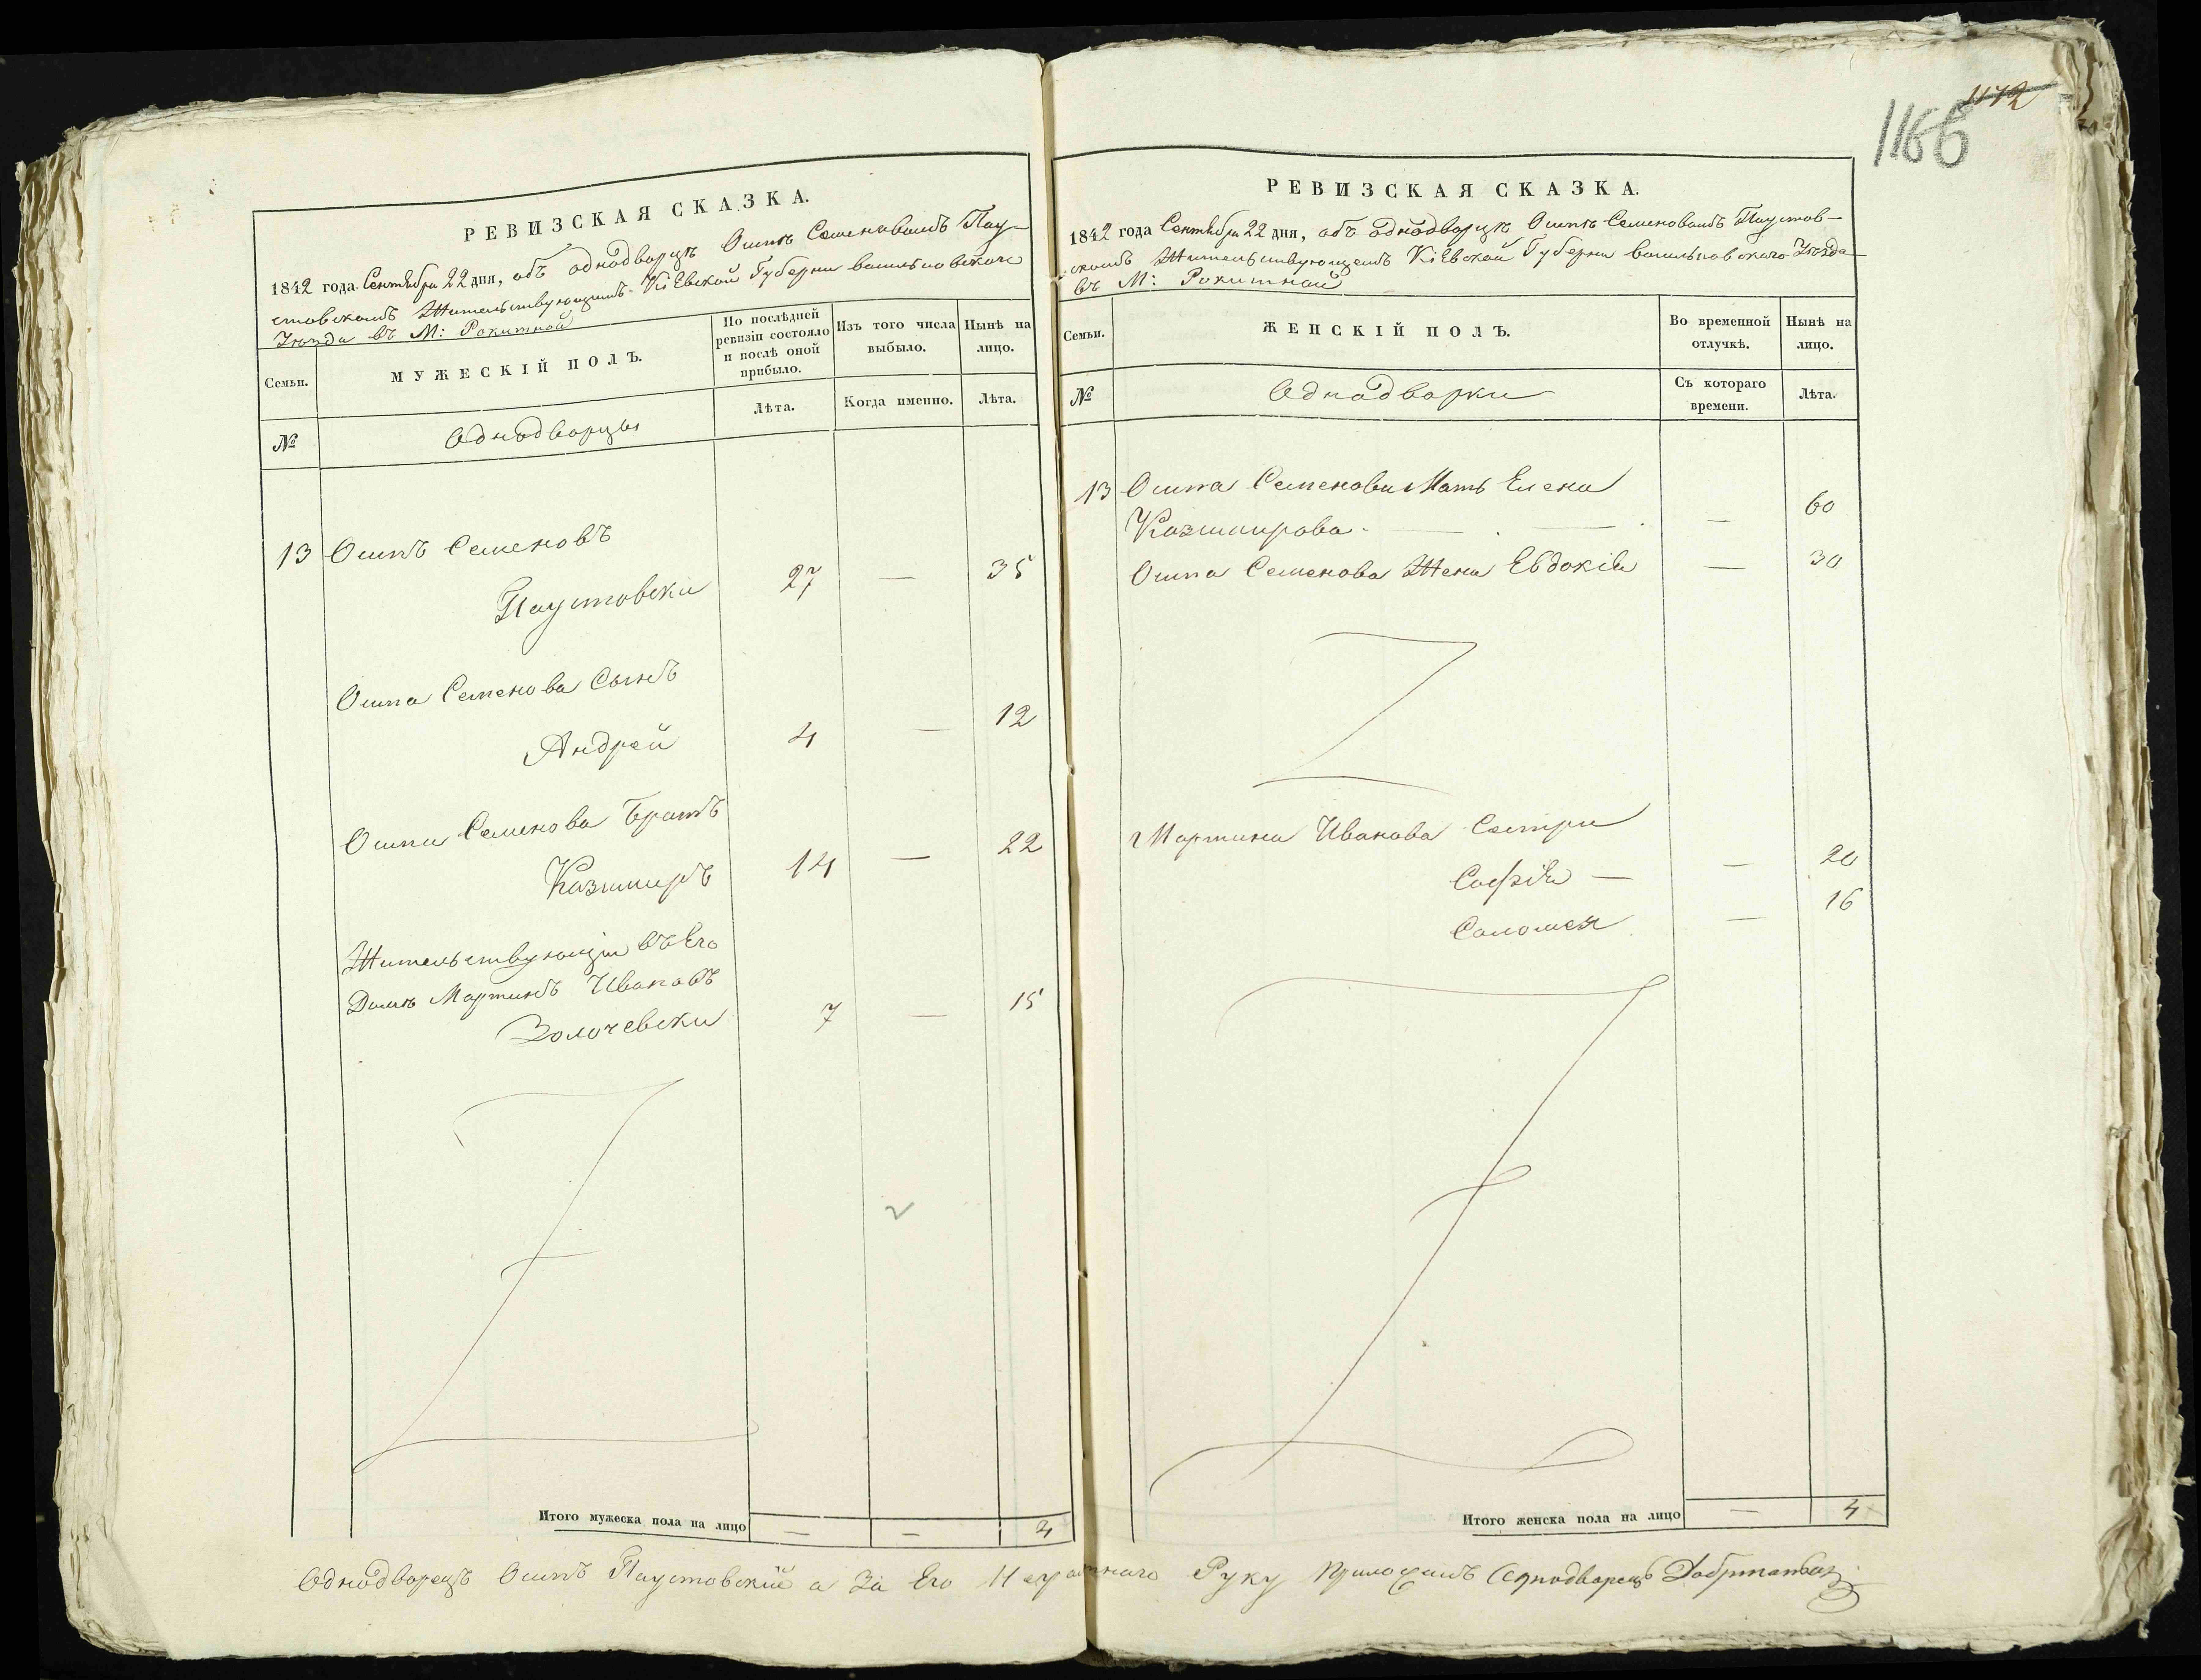 РЕВИЗСКАЯ СКАЗКА.
1842 года Сентября 22 дня, объ однодворцѣ Осипѣ Семеновомъ Пау-
стовскомъ Жительствующемъ Кіевской Губерни васильковского
Уѣзда въ М: Рокитной
Семьи.
МУЖЕСКІЙ ПОЛЪ.
По послѣдней
ревизіи состояло
и послѣ оной
прибыло.
Изъ того числа
выбыло.
Нынѣ на
лицо.
№
Однодворцы
Лѣта.
Когда именно.
Лѣта.
13 Осипъ Семеновъ
Паустовски 27 — 35
Осипа Семенова Сынъ
Андрей 4 — 12
Осипа Семенова Братъ
Казимиръ 14 — 22
Жительствующи въ Его
Домѣ Мартинъ Ивановъ
Золочевски 7 — 15
Итого мужеска пола на лицо — — 4
1172
1166
РЕВИЗСКАЯ СКАЗКА.
1842 года Сентября 22 дня, объ однодворцѣ Осипѣ Семеновомъ Паустов-
скомъ Жительствующемъ Кіевской Губерни васильковского Уѣзда
въ М: Рокитной
Семьи.
ЖЕНСКІЙ ПОЛЪ.
Во временной
отлучкѣ.
Нынѣ на
лицо.
№
Однодворки
Съ котораго
времени.
Лѣта.
13 Осипа Семенова Мать Елена
Казимирова — — — 60
Осипа Семенова Жена Евдокія — 30
Мартина Иванова Сестри
Софія — — 20
Саломея — 16
Итого женска пола на лицо — 4
Однодворецъ Осипъ Паустовскій а За Его Неграмотнаго Руку приложилъ Однодворецъ